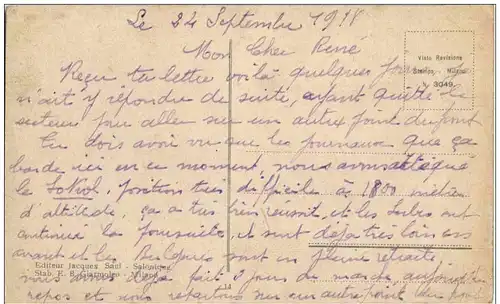 Le 24 Septembre 1918
Mon Cher René
Visto Revisione
Stampa, Milano
N. 3049.
Reçu ta lettre voilà quelques jours, je
n'ait y répondre de suite, ayant quitté le
secteur pour aller sur un autre point du front
Tu dois avoir vu que les journaux que ça
barde ici en ce moment, nous avons attaqué
le Sokol, position très difficile à 1800 mètres
d'altitude, ça a très bien réussit, et les Serbes ont
continué la poursuite, et sont déjà très loin en
avant et les Bulgares sont en pleine retraite
Editeur Jacques Saül - Salonique
nous avons déjà fait 3 jours de marche aujourd'hui
Stab. E. B. Milano
repos et nous repartons sur un autre
14